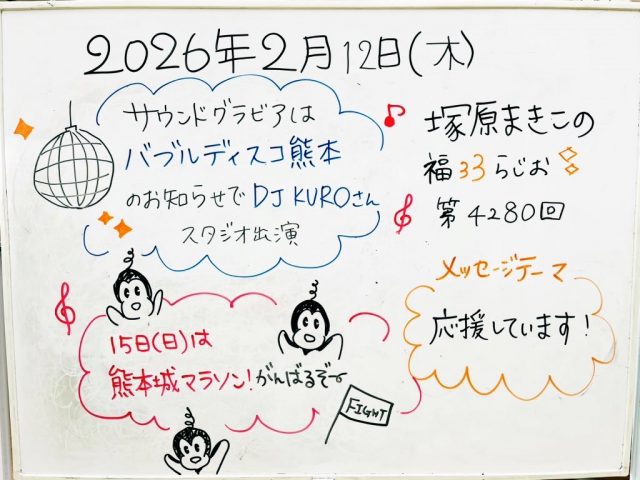 2026年2月12日(木)
サウンドグラビアは
バブルディスコ熊本
のお知らせで DJ KUROさん
スタジオ出演
塚原まきこの
福33らじお
第4280回
メッセージテーマ
応援しています!
15日(日)は
熊本城マラソン!がんばるぞー
FIGHT